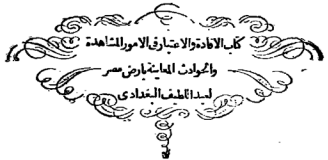 كتاب الافادة والاعتبار فى الامور المشاهدة
والحوادث المعاينة بارض مصر
لعبد اللطيف البغدادى